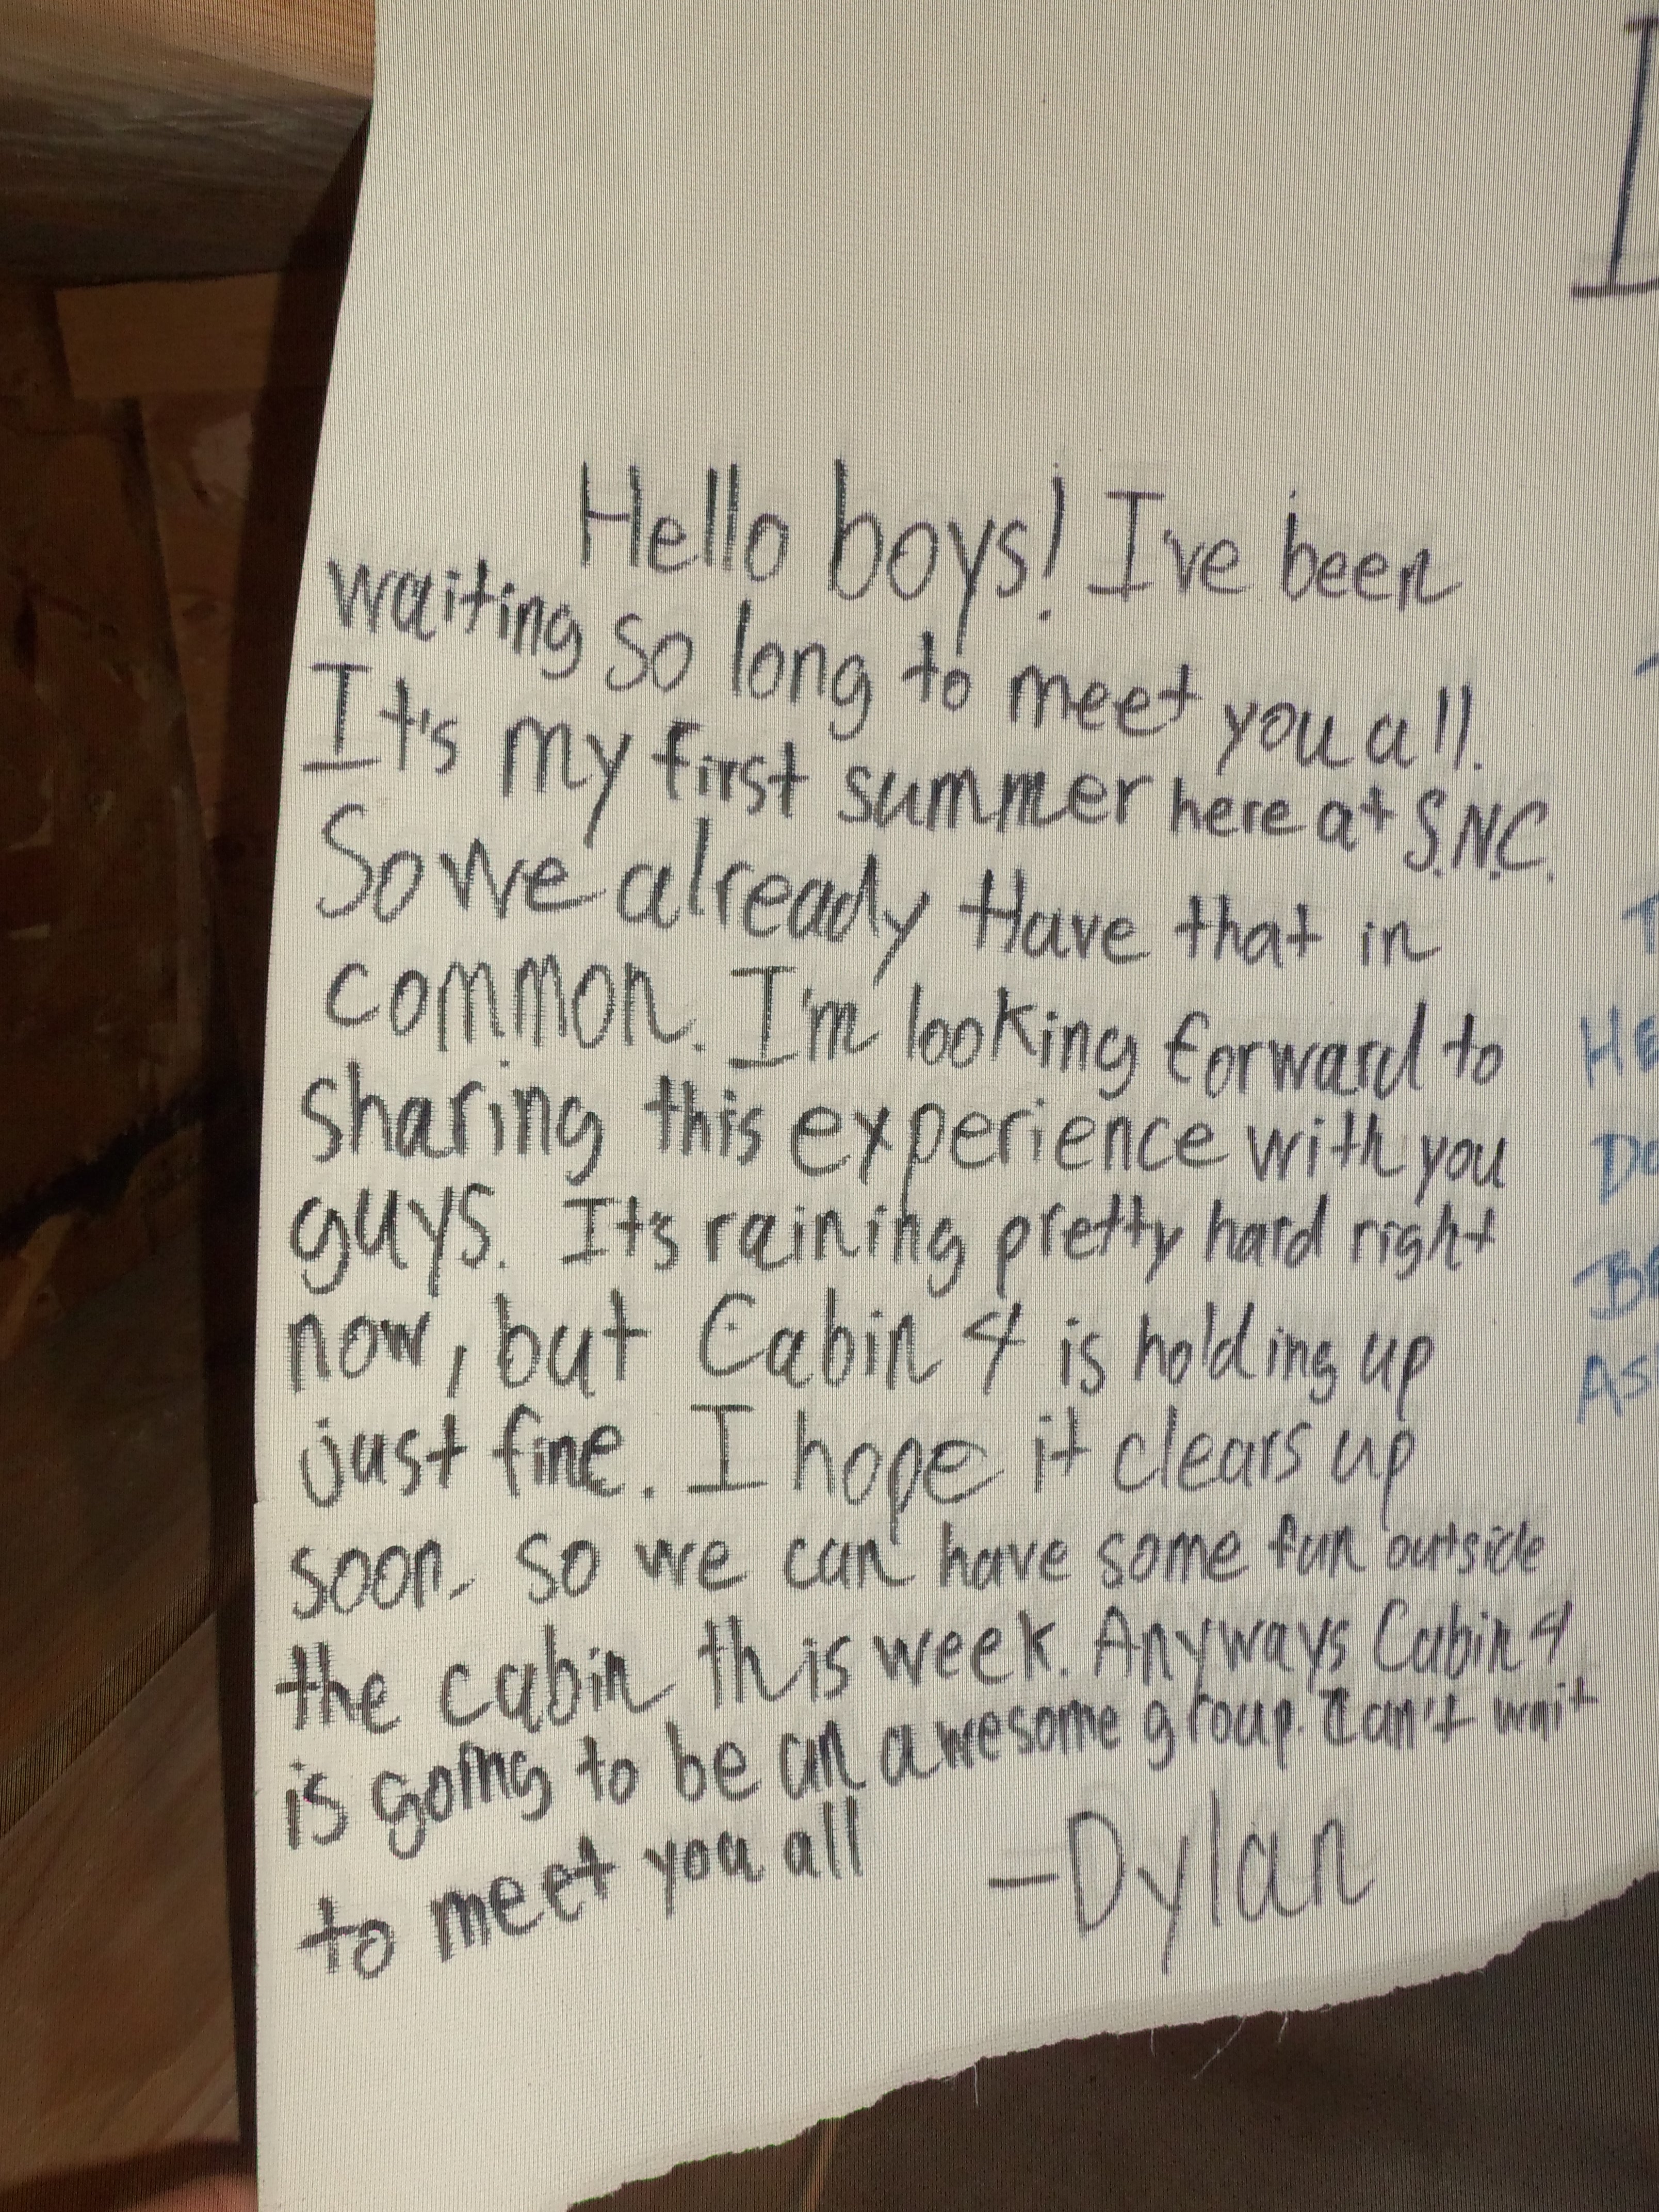 Hello boys! I've been
waiting so long to meet you all.
It's my first summer here at S.N.C.
So we already Have that in
common. I'm looking forward to
sharing this experience with you
guys. It's raining pretty hard right
now, but Cabin 4 is holding up
just fine. I hope it clears up
soon, so we can have some fun outside
the cabin this week. Anyways Cabin 4
is going to be an awesome group. Can't wait
to meet you all
-Dylan
HE
DO
AS